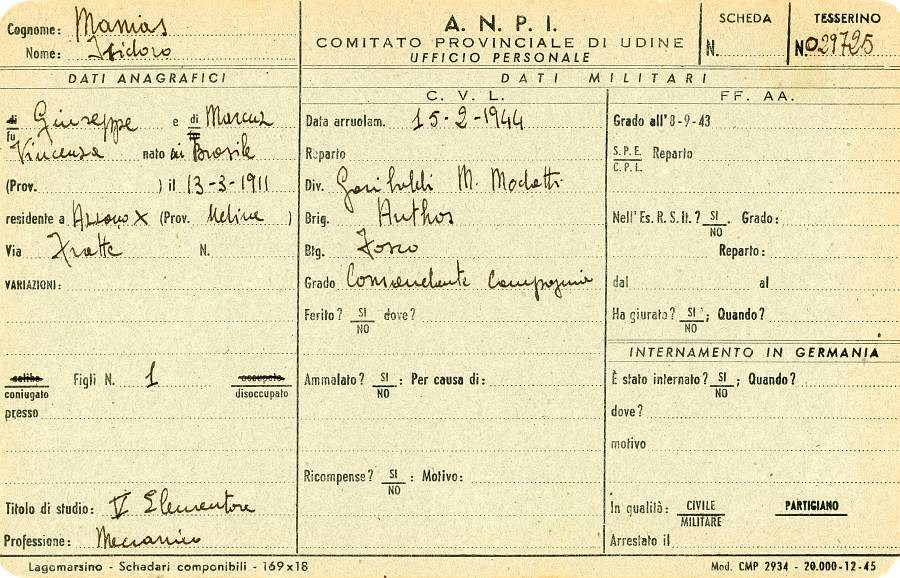 Cognome: Manias
Nome: Isidoro
A. N. P. I.
COMITATO PROVINCIALE DI UDINE
UFFICIO PERSONALE
SCHEDA
N.
TESSERINO
N. 029725
DATI ANAGRAFICI
di fu Giuseppe e di Marcuz
Vincenza nato in Brasile
(Prov. ) il 13-3-1911
residente a (Prov. Udine )
Via Fratte N.
VARIAZIONI:
celibe
coniugato
Figli N. 1
occupato
disoccupato
presso
Titolo di studio: V Elementare
Professione: Meccanico
DATI MILITARI
C. V. L.
Data arruolam. 15-2-1944
Reparto
Div. Garibaldi M. Modotti
Brig. Anthos
Btg. Tosco
Grado Comandante Compagnia
Ferito? SI NO dove?
Ammalato? SI NO : Per causa di:
Ricompense? SI NO : Motivo:
FF. AA.
Grado all'8-9-43
S.P.E. C.P.L. Reparto
Nell'Es. R. S. It.? SI NO . Grado:
Reparto:
dal al
Ha giurato? SI NO ; Quando?
INTERNAMENTO IN GERMANIA
È stato internato? SI NO ; Quando?
dove?
motivo
In qualità: CIVILE MILITARE PARTIGIANO
Arrestato il
Lagomarsino - Schedari componibili - 169x18
Mod. CMP 2934 - 20.000-12-45